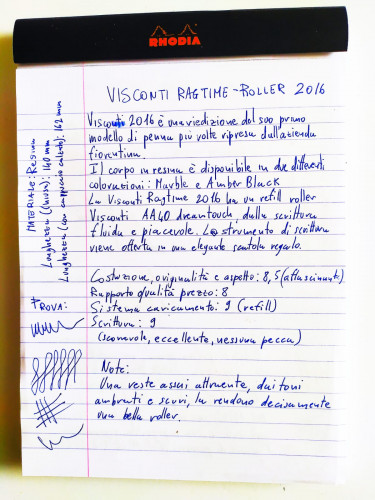 RHODIA
VISCONTI RAGTIME-ROLLER 2016
Visconti 2016 è una riedizione del suo primo
modello di penna più volte ripresa dall'azienda
fiorentina.
Il corpo in resina è disponibile in due differenti
colorazioni: Marble e Amber Black
La Visconti Ragtime 2016 ha un refill roller
Visconti AA40 dreamtouch, dalla scrittura
fluida e piacevole. Lo strumento di scrittura
viene offerta in una elegante scatola regalo.
Costruzione, originalità e aspetto: 8,5 (affascinante)
Rapporto qualità prezzo: 8
Sistema caricamento: 9 (refill)
Scrittura: 9
(scorrevole, eccellente, nessuna pecca)
Note:
Una veste assai attraente, dai toni
ambrati e scuri, la rendono decisamente
una bella roller.
MATERIALE: Resina
Lunghezza (chiusa): 140 mm
Lunghezza (con cappuccio calzato): 162 mm
PROVA: